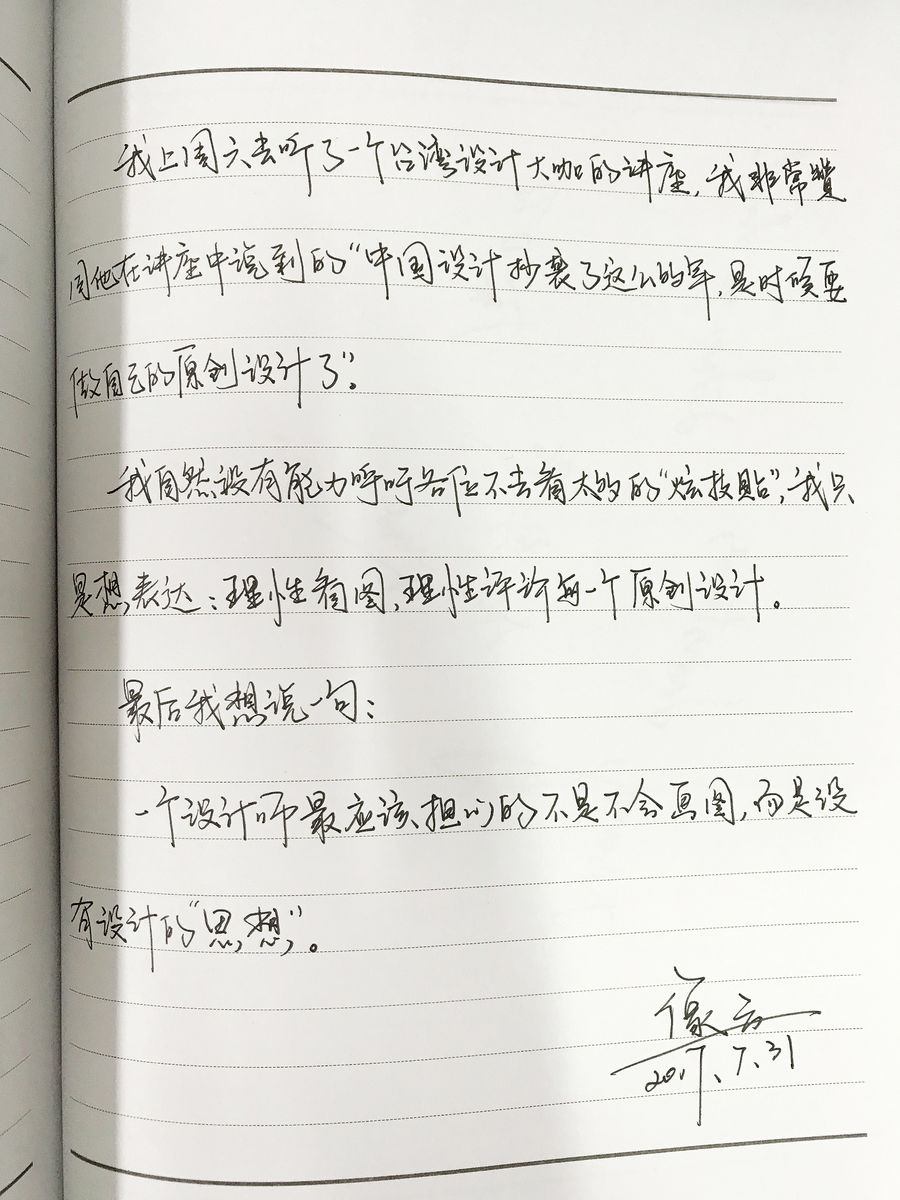 我上周六去听了一个台湾设计大咖的讲座,我非常赞
同他在讲座中说到的“中国设计抄袭了这么的年,是时候要
做自己的原创设计了”。
我自然没有能力呼吁各位不去看太多的“炫技贴”,我只
是想表达:理性看图,理性评论每一个原创设计。
最后我想说一句:
一个设计师最应该担心的不是不会画图,而是没
有设计的“思想”。
2017.7.31